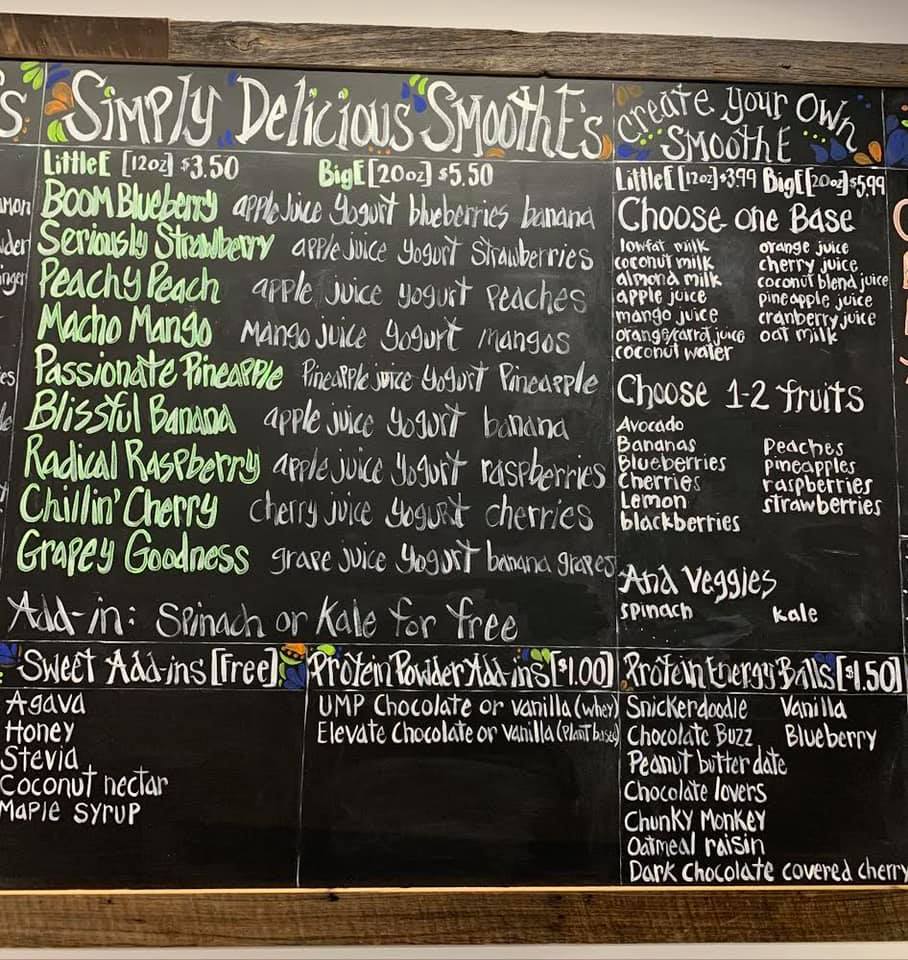 Simply Delicious SmoothE's
LittleE [12oz] $3.50 BigE [20oz] $5.50
BOOM Blueberry apple juice Yogurt blueberries banana
Seriously Strawberry apple juice Yogurt Strawberries
Peachy Peach apple juice yogurt peaches
Macho Mango Mango juice Yogurt mangos
Passionate Pineapple Pineapple juice Yogurt Pineapple
Blissful Banana apple juice Yogurt banana
Radical Raspberry apple juice Yogurt raspberries
Chillin' Cherry cherry juice Yogurt cherries
Grapey Goodness grape juice Yogurt banana grapes
Add-in: Spinach or Kale for free
Create Your Own
SmoothE
LittleE [12oz] $3.99 BigE [20oz] $5.99
Choose one Base
lowfat milk orange juice
coconut milk cherry juice
almond milk coconut blend juice
apple juice pineapple juice
mango juice cranberry juice
orange/carrot juice oat milk
coconut water
Choose 1-2 fruits
Avocado
Bananas Peaches
Blueberries pineapples
Cherries raspberries
Lemon strawberries
blackberries
And Veggies
spinach kale
Sweet Add-ins [Free]
Agava
Honey
Stevia
Coconut nectar
Maple syrup
Protein Powder Add-ins [$1.00]
UMP Chocolate or vanilla (whey)
Elevate Chocolate or vanilla (plant based)
Protein Energy Balls [$1.50]
Snickerdoodle Vanilla
Chocolate Buzz Blueberry
Peanut butter date
Chocolate lovers
Chunky Monkey
Oatmeal raisin
Dark Chocolate covered cherry